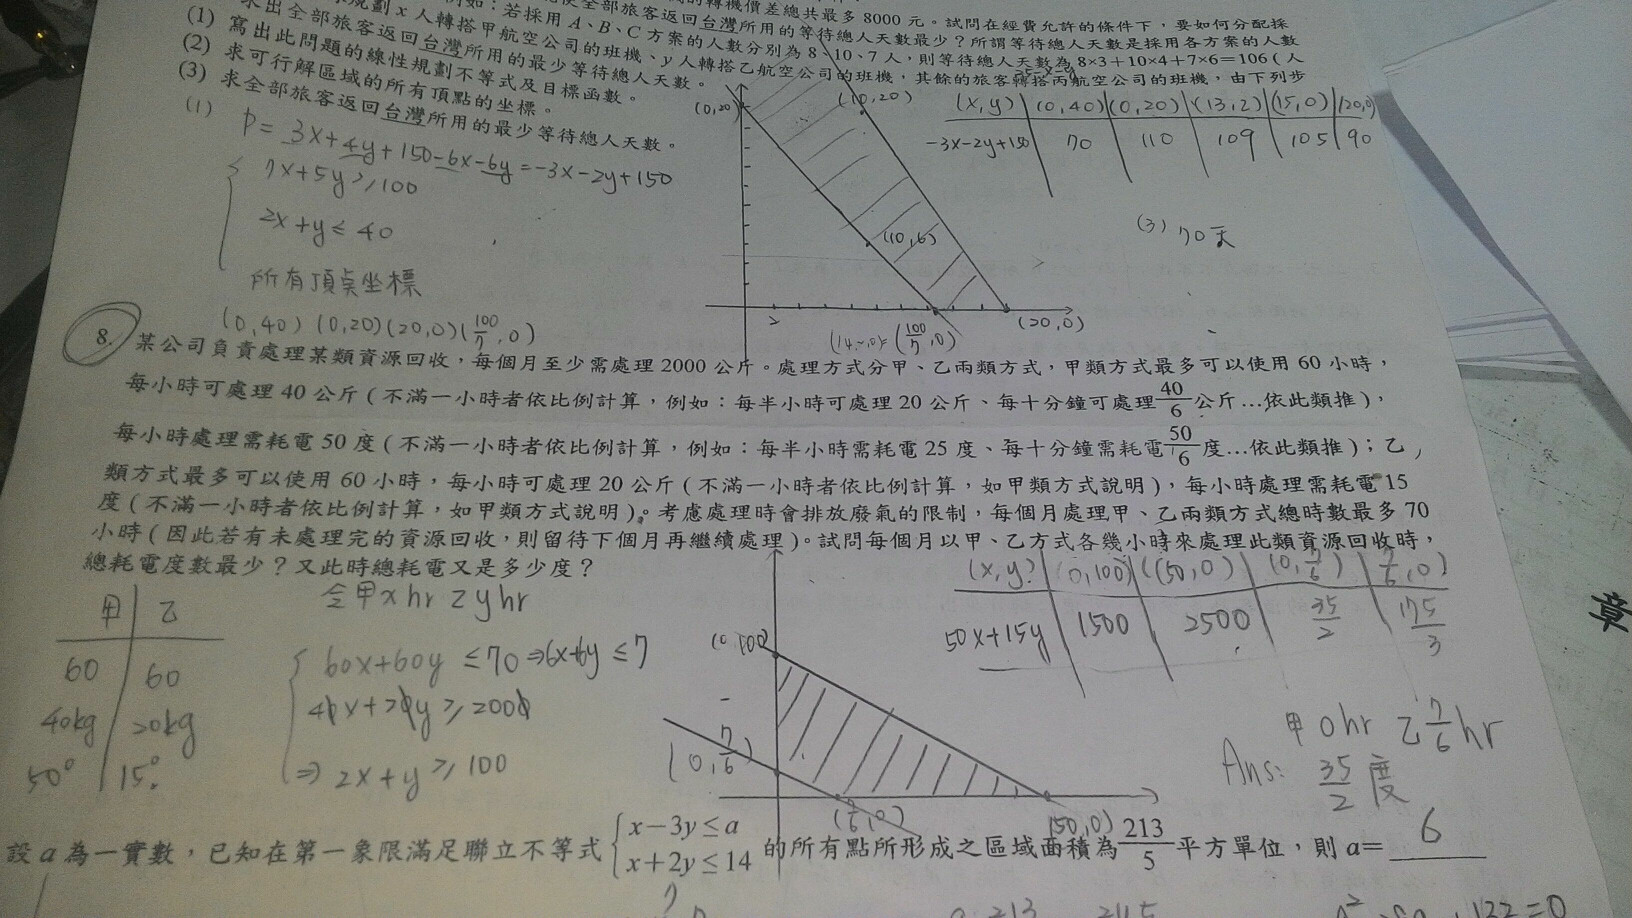 用的轉機價差總共最多 8000 元。試問在經費允許的條件下,要如何分配採
使全部旅客返回台灣所用的等待總人天數最少?所謂等待總人天數是採用各方案的人數
例如:若採用 A、B、C 方案的人數分別為 8、10、7 人,則等待總人天數為 8×3+10×4+7×6=106(人
規劃 x 人轉搭甲航空公司的班機、y 人轉搭乙航空公司的班機,其餘的旅客轉搭丙航空公司的班機,由下列步
(1) 求出全部旅客返回台灣所用的最少等待總人天數。
(2) 寫出此問題的線性規劃不等式及目標函數。
(2) 求可行解區域的所有頂點的坐標。
(3) 求全部旅客返回台灣所用的最少等待總人天數。
(1)
P= 3x+4y+150-6x-6y=-3x-2y+150
7x+5y≥100
2x+y≤40
所有頂點坐標
(0,40) (0,20)(20,0)(100/7,0)
(0,20)
(10,20)
(10,6)
(100/7,0)
(20,0)
2
(x,y) (0,40) (0,20) (13,2) (15,0) (20,0)
-3x-2y+150 70 110 109 105 90
(3) 70天
8. 某公司負責處理某類資源回收,每個月至少需處理 2000 公斤。處理方式分甲、乙兩類方式,甲類方式最多可以使用 60 小時,
每小時可處理 40 公斤(不滿一小時者依比例計算,例如:每半小時可處理 20 公斤、每十分鐘可處理 40/6 公斤…依此類推),
每小時處理需耗電 50 度(不滿一小時者依比例計算,例如:每半小時需耗電 25 度、每十分鐘需耗電 50/6 度…依此類推);乙
類方式最多可以使用 60 小時,每小時可處理 20 公斤(不滿一小時者依比例計算,如甲類方式說明),每小時處理需耗電 15
度(不滿一小時者依比例計算,如甲類方式說明)。考慮處理時會排放廢氣的限制,每個月處理甲、乙兩類方式總時數最多 70
小時(因此若有未處理完的資源回收,則留待下個月再繼續處理)。試問每個月以甲、乙方式各幾小時來處理此類資源回收時,
總耗電度數最少?又此時總耗電又是多少度?
甲 乙
60 60
40kg 20kg
50° 15°
令甲x hr 乙y hr
60x+60y ≤70⇒6x+6y ≤7
40x+20y ≥2000
⇒ 2x+y ≥100
(0,100)
(0,7/6)
(7/6,0)
(50,0)
(x,y) (0,100) (50,0) (0,7/6) (7/6,0)
50x+15y 1500 2500 35/2 175/3
甲0hr 乙7/6hr
Ans: 35/2度
設 a 為一實數,已知在第一象限滿足聯立不等式 { x-3y≤a x+2y≤14 的所有點所形成之區域面積為 213/5 平方單位,則 a= 6
章